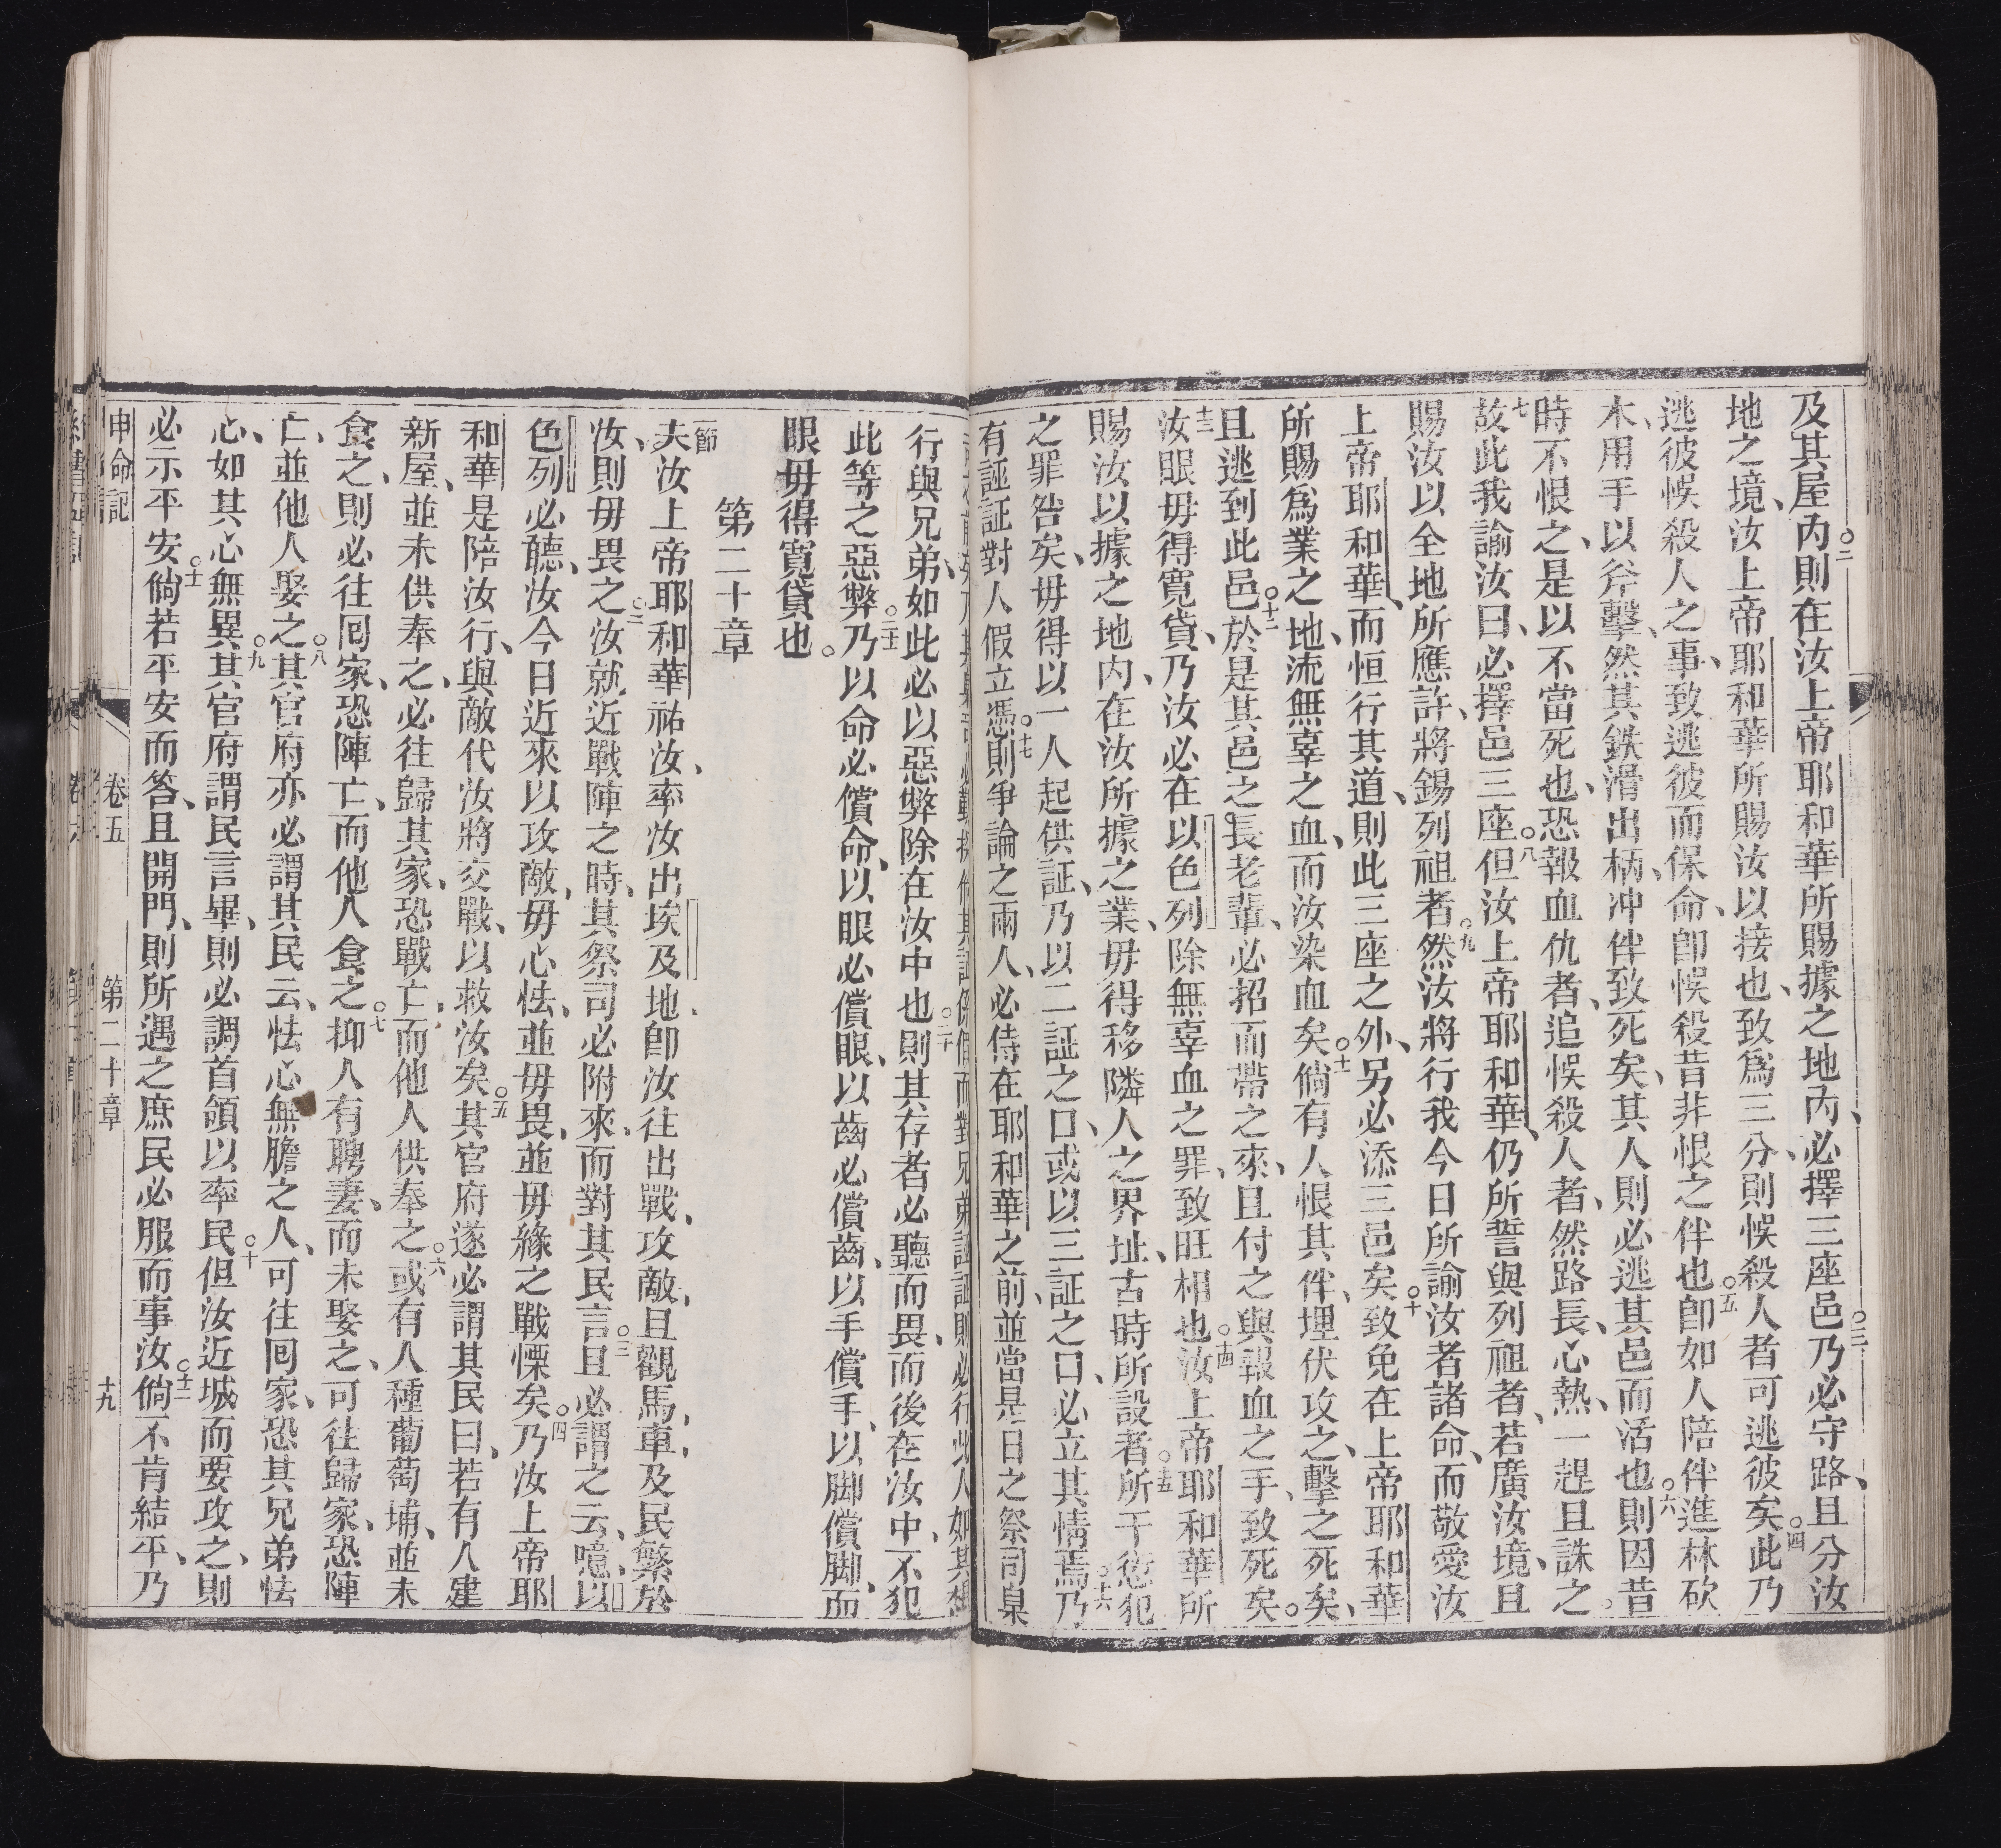 及其屋內○二則在汝上帝耶和華所賜據之地內、必擇三座邑○三乃必守路、且分汝
地之境、汝上帝耶和華所賜汝以接也、致爲三分、則悞殺人者可逃彼矣○四此乃
逃彼悞殺人之事、致逃彼而保命、卽悞殺昔非恨之伴也○五卽如人陪伴進林砍
木、用手以斧擊、然其鉄滑出柄、冲伴致死矣、其人則必逃其邑而活也○六則因昔
時不恨之、是以不當死也、恐報血仇者、追悞殺人者、然路長、心熱、一趕且誅之。
七故此我諭汝曰、必擇邑三座○八但汝上帝耶和華、仍所誓與列祖者、若廣汝境、且
賜汝以全地所應許、將錫列祖者○九然汝將行我今日所諭汝者諸命、而敬愛汝
上帝耶和華、而恒行其道、則此三座之外、另必添三邑矣○十致免在上帝耶和華
所賜爲業之地、流無辜之血、而汝染血矣○十一倘有人恨其伴、埋伏攻之、擊之死矣、
且逃到此邑○十二於是其邑之長老輩、必招而帶之來、且付之與報血之手、致死矣。
十三汝眼毋得寬貸、乃汝必在以色列除無辜血之罪、致旺相也○十四汝上帝耶和華所
賜汝以據之地內、在汝所據之業、毋得移隣人之界址、古時所設者○十五所干愆犯
之罪咎矣、毋得以一人起供証、乃以二証之口、或以三証之口、必立其情焉○十六乃
有誣証對人假立憑○十七則爭論之兩人、必侍在耶和華之前、並當是日之祭司臬
行與兄弟、如此必以惡弊除在汝中也○二十則其存者必聽而畏、而後在汝中、不犯
此等之惡弊○二十一乃以命必償命、以眼必償眼、以齒必償齒、以手償手、以脚償脚、而
眼毋得寬貸也。
第二十章
一節夫汝上帝耶和華祐汝、率汝出埃及地、卽汝往出戰、攻敵、且觀馬、車、及民繁於
汝、則毋畏之○二汝就近戰陣之時、其祭司必附來、而對其民言○三且必謂之云、噫、以
色列必聽、汝今日近來以攻敵、毋心怯、並毋畏、並毋緣之戰慄矣○四乃汝上帝耶
和華是陪汝行、與敵代汝將交戰、以救汝矣○五其官府遂必謂其民曰、若有人建
新屋、並未供奉之、必往歸其家、恐戰亡、而他人供奉之○六或有人種葡萄埔、並未
食之、則必往囘家、恐陣亡、而他人食之○七抑人有聘妻、而未娶之、可往歸家、恐陣
亡、並他人娶之○八其官府亦必謂其民云、怯心無膽之人、可往囘家、恐其兄弟怯
心、如其心無異○九其官府謂民言畢、則必調首領以率民○十但汝近城而要攻之、則
必示平安○十一倘若平安而答、且開門、則所遇之庶民必服而事汝○十二倘不肯結平、乃
申命記　卷五　第二十章　十九